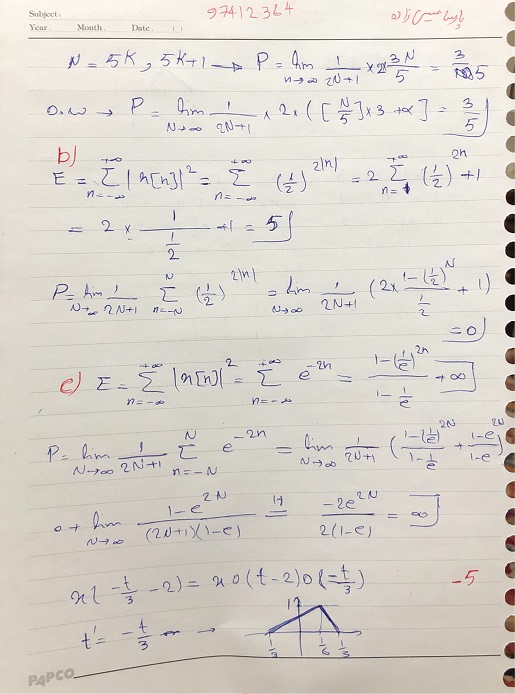 Subject:
97412364
Year. Month. Date. ( )
N = 5k, 5k+1 → P = lim n→∞ 1/(2N+1) × 2 × 3N/5 = 3/5
o.w → P = lim N→∞ 1/(2N+1) × 2 × ([N/5] × 3 + α] = 3/5
b)
E = Σ n=-∞ +∞ |x[n]|² = Σ n=-∞ +∞ (1/2)^2|n| = 2 Σ n=1 +∞ (1/2)^2n + 1
= 2 × 1/(1/2) + 1 = 5
P = lim N→∞ 1/(2N+1) Σ n=-N N (1/2)^2|n| = lim N→∞ 1/(2N+1) (2 × (1-(1/2)^N)/(1/2) + 1)
= 0
c) E = Σ n=-∞ +∞ |x[n]|² = Σ n=-∞ +∞ e^-2n = (1-(1/e)^2n)/(1-1/e) + ∞
P = lim N→∞ 1/(2N+1) Σ n=-N N e^-2n = lim N→∞ 1/(2N+1) ((1-(1/e)^2N)/(1-1/e) + (1-e^2N)/(1-e))
0 + lim N→∞ (1-e^2N)/((2N+1)(1-e)) H= (-2e^2N)/(2(1-e)) = ∞
x(-t/3 - 2) = x o (t-2) o (-t/3) -5
t' = -t/3 →
1
1/3 1/6 1/3
PAPCO